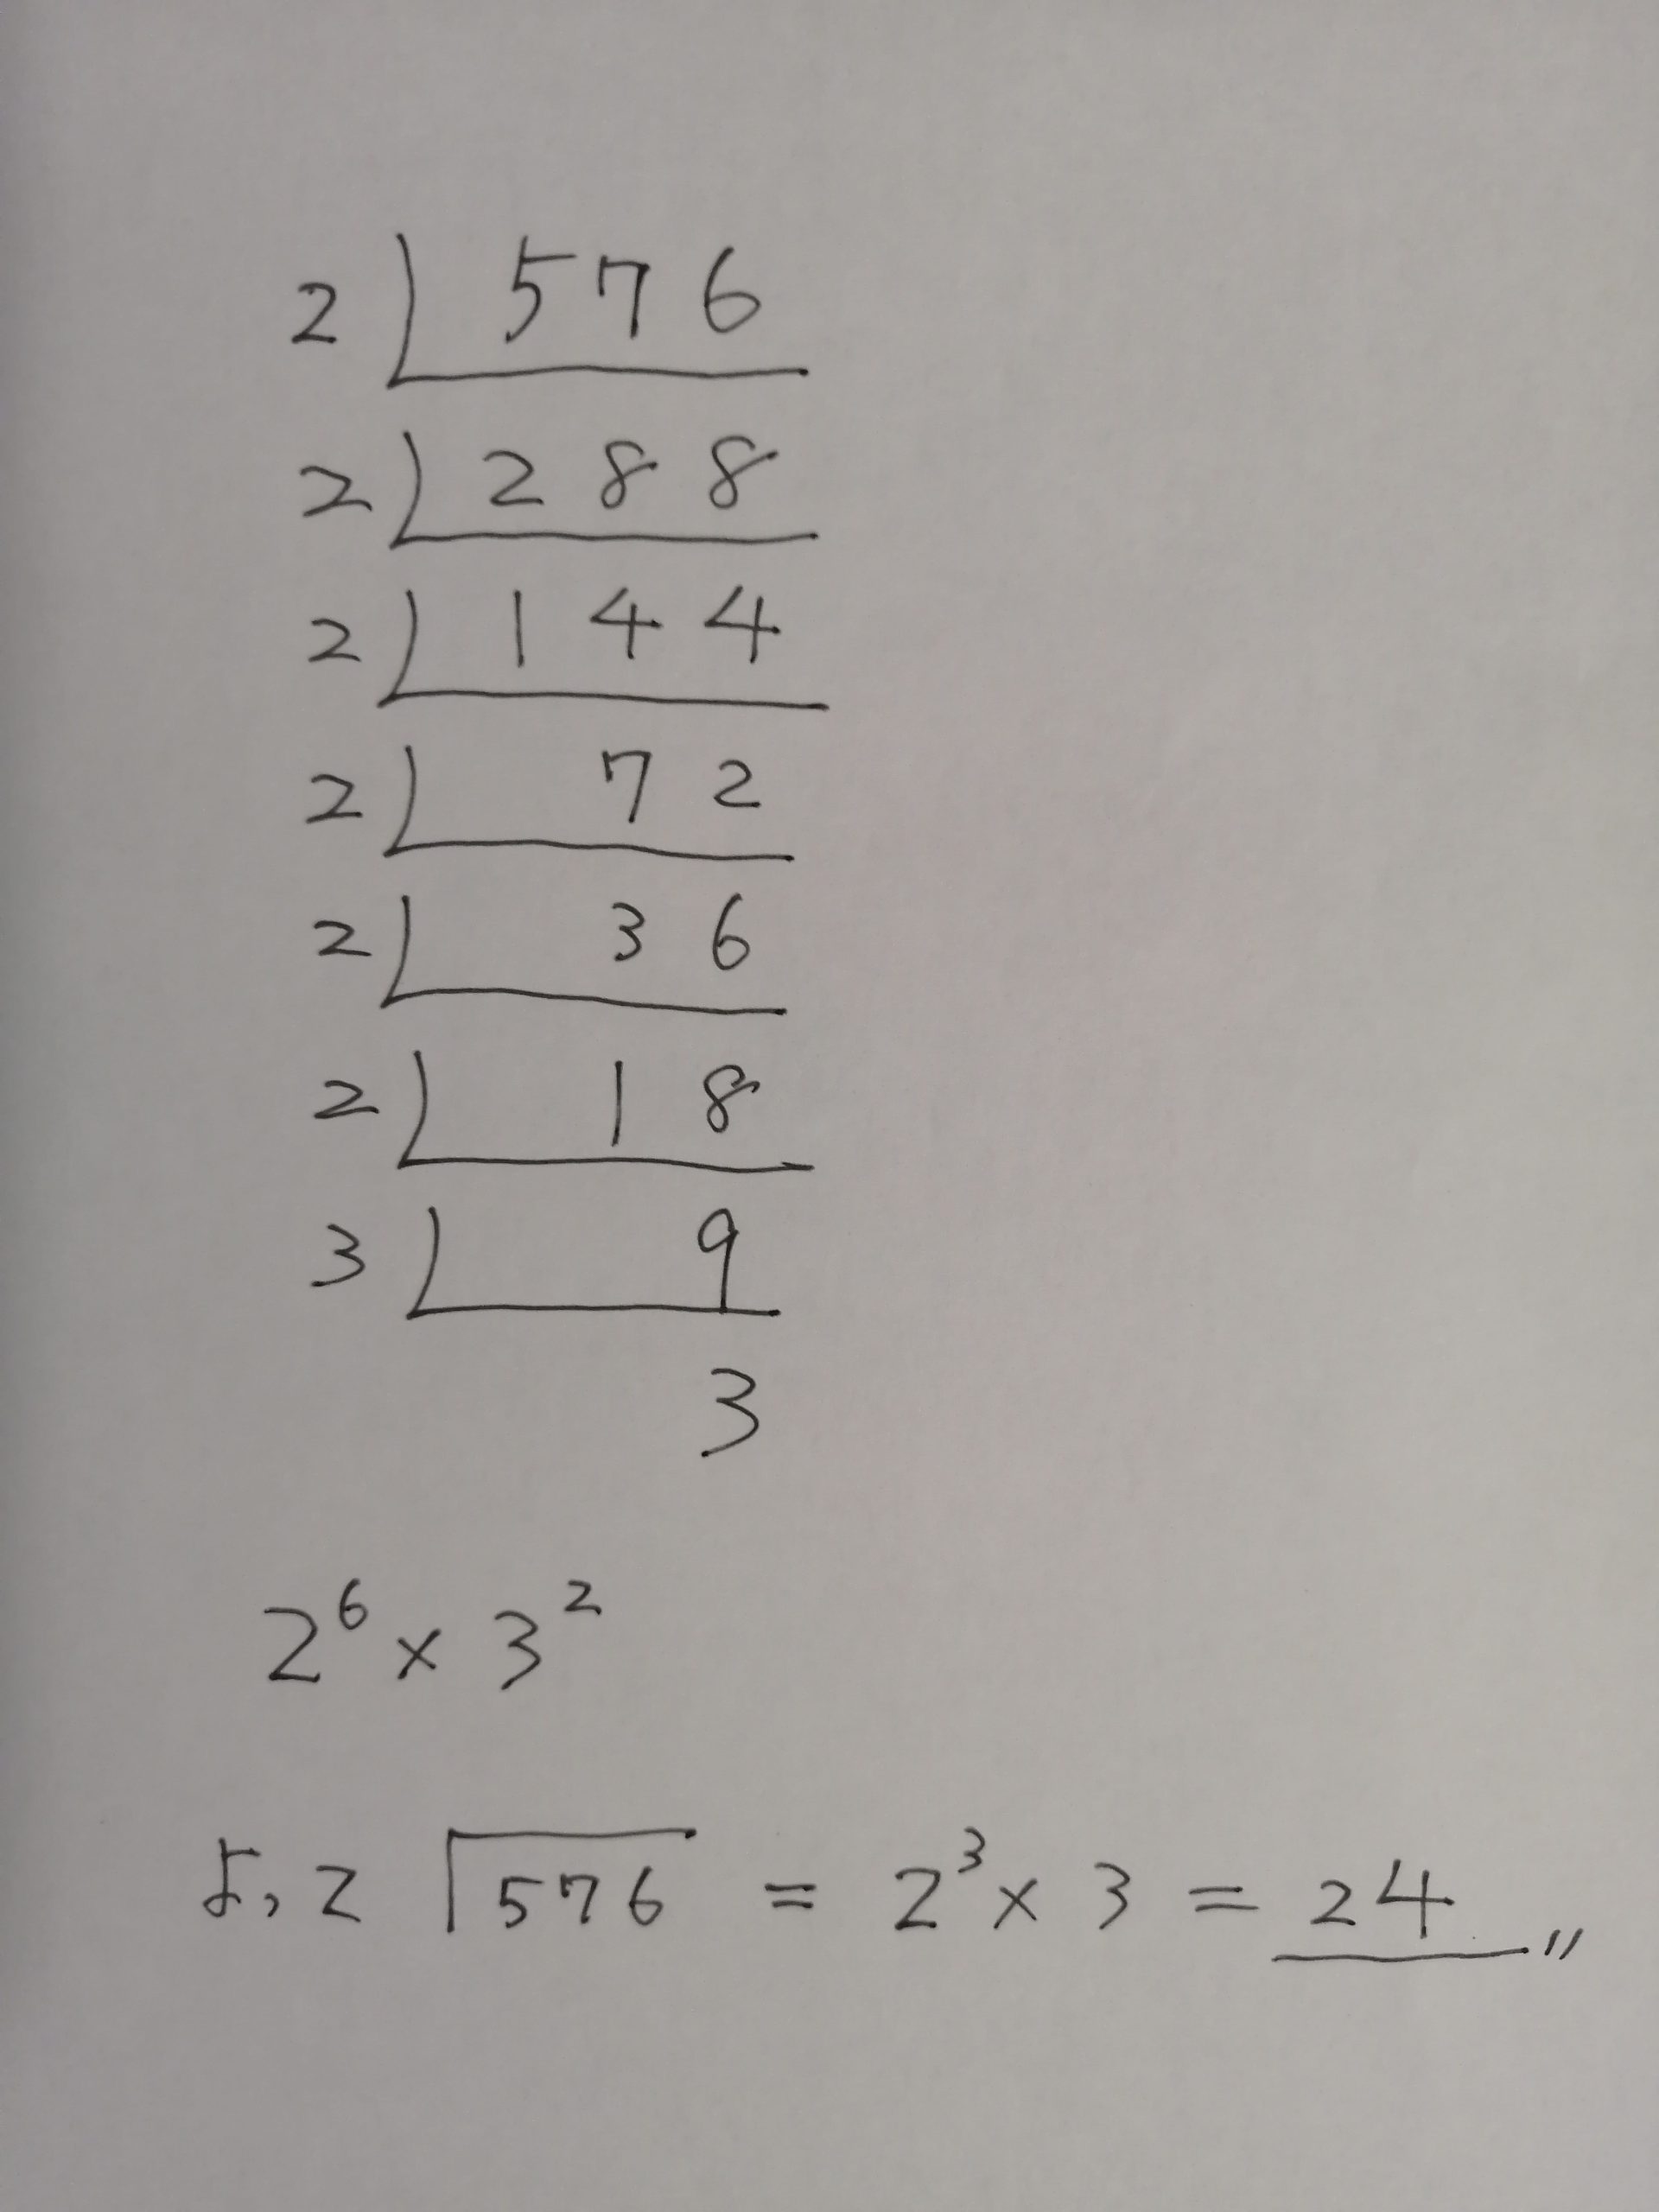 2 ) 576
2 ) 288
2 ) 144
2 ) 72
2 ) 36
2 ) 18
3 ) 9
3
2⁶ × 3²
よって √576 = 2³ × 3 = 24 〃